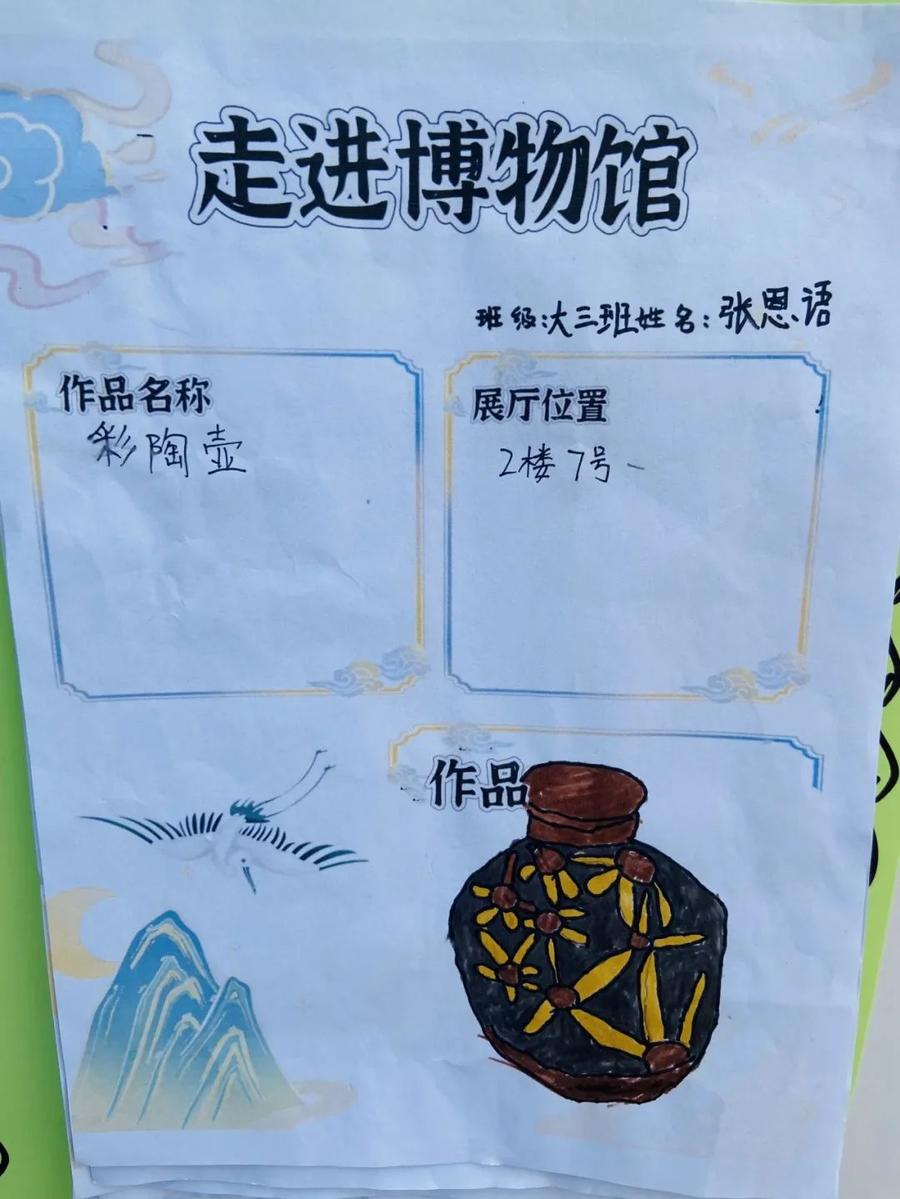 走进博物馆
班级:大三班姓名:张恩语
作品名称
彩陶壶
展厅位置
2楼7号
作品